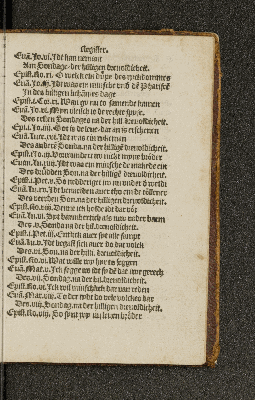 Register.
Euā. Jo. vi. Idt kan nemant
Am Sondage der hilligen drevoldicheit.
Epist. Ro. xi. O welck ein dūpe des ryckdommes
Euā. Jo. iij. Idt was ein minsche vnd̄ dē Phariseis
In des hilligen
Epist. i. Cor. xi. Wan gy nu to samende kamen
Euā. Jo. vi. Myn vleisch is de rechte spyse.
Des ersten Sondages na der hill. drevoldicheit.
Epist. i. Jo. iiij. Got is de leue, dar an is erschenen
Euā. Luce. xvi. Idt was ein ryke man
Des anderē Sonda. na der hilligē drevoldicheit.
Epist. i. Jo. iij. Vorwundert iw nicht myne brȫder
Euan. Lu. xiiij. Idt was ein minsche de makede ein
Des drüdden Son. na der hilligē drevoldicheit.
Epist. i. Pet. v. So vedderiget iw nu vnder d̄
Euā. Lu. xv. Idt auer tho em de tölner
Des veerden Son. na der hilligen drevoldicheit.
Epist. Ro. viij. Denne ick holde idt dar vȫr
Euā. Lu. vi. Syt barmhertich als iuw vader
Des. v. Sonda. na der hil. drevoldicheit.
Epist. i. Pet. iij. Entlick auer syt alle sampt
Euā. Lu. v. Idt begaff sick auer do dat volck
Des. vi. Son. na der hill. drevoldicheit.
Epist. Ro. vi. Wat wille wy hyr to seggen
Euā. Mat. v. Ick segge iw idt sy dē dat iwe gerech
Des. vij. Sondag. na der hil. drevoldicheit.
Epist. Ro. vi. Ick wil dar van reden
Euā. Mar. viij. To der tydt do vele volckes dar
Des. viij. Sondag. na der hilligen drevoldicheit.
Epist. Ro. viij. So synt wy nu leuen brȫder